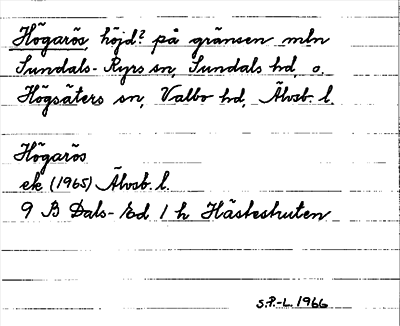 Högarös, höjd? på gränsen mln
Sundals-Ryrs sn, Sundals hd, o.
Högsäters sn, Valbo hd, Älvsb. l.
Högarös
ek (1965) Älvsb. l.
9 B Dals-Ed 1 h Hästeshuten
S.P.-L. 1966